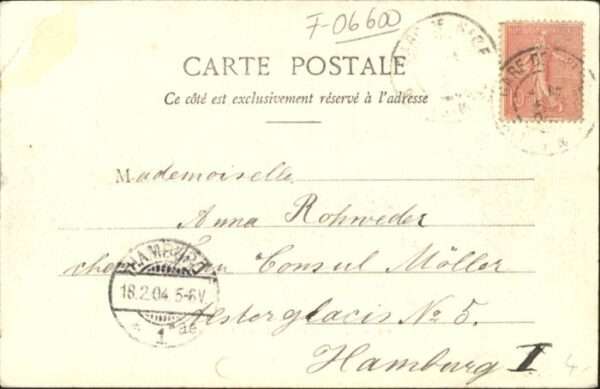 F-06600
CARTE POSTALE
Ce côté est exclusivement réservé à l'adresse
GARE DE
GARE DE
Mademoiselle
Anna Rohweder
Consul Möller
HAMBURG
18.2.04 5-6V.
1
Alsterglacis No 5.
Hamburg I
4.